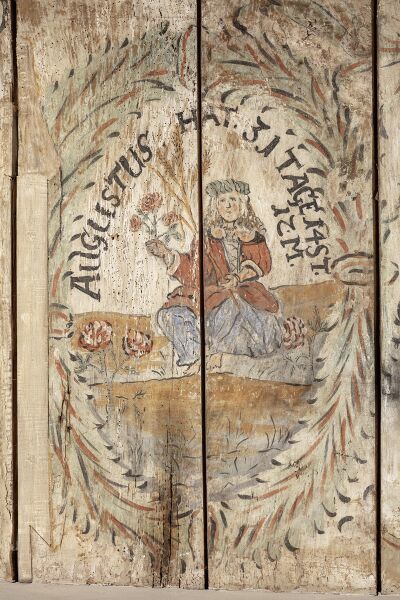 AUGUSTUS HAT. 31 TAGE. IST
12 M